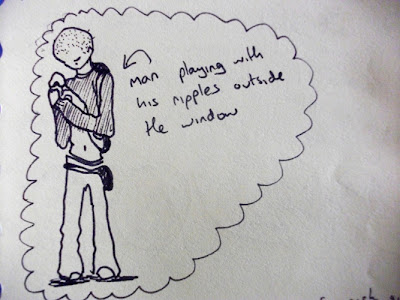 Man playing with
his nipples outside
the window